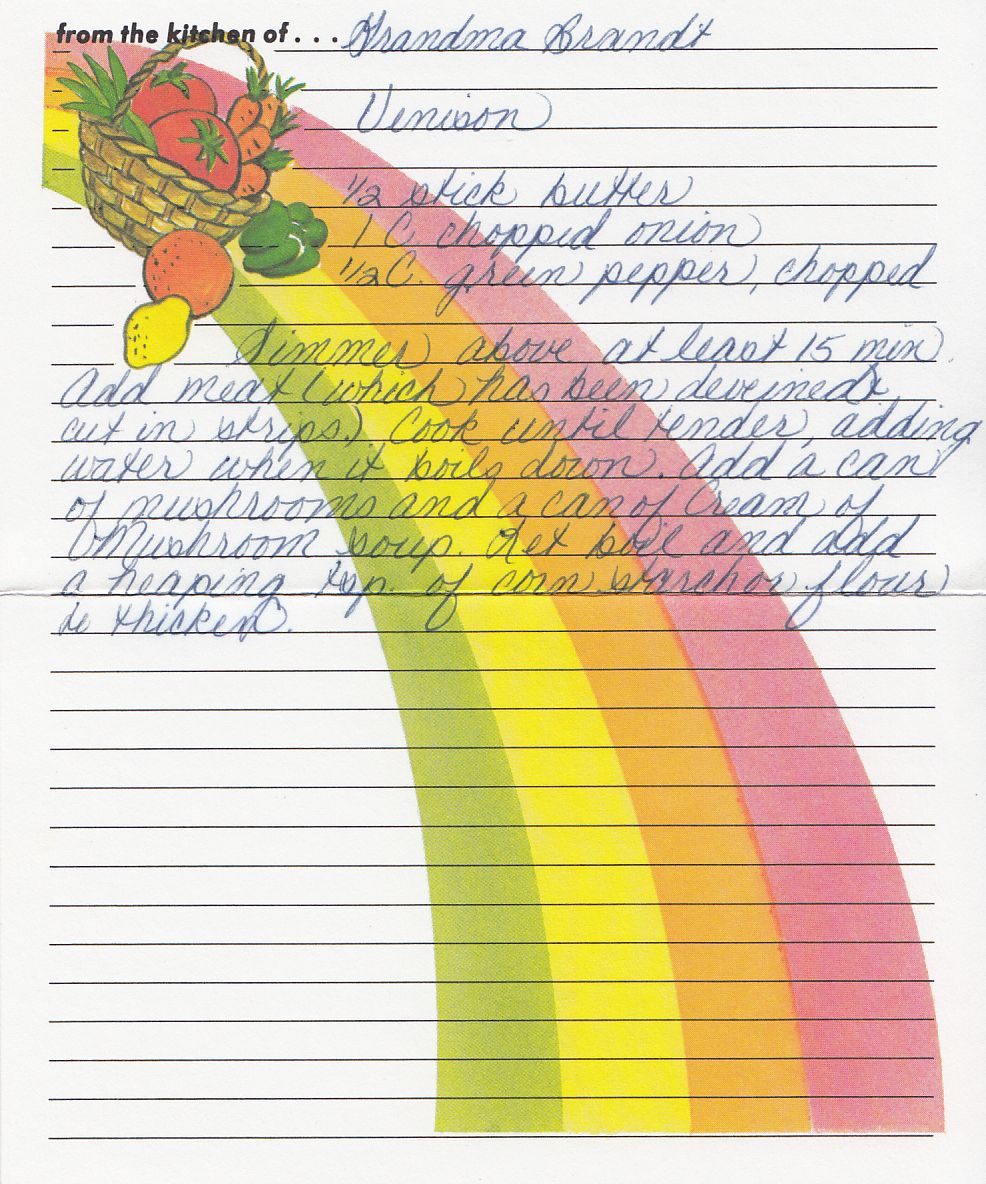 from the kitchen of . . . Grandma Brandt
Venison
1/2 stick butter
1 C chopped onion
1/2 C. green pepper, chopped
Simmer above at least 15 min.
Add meat (which has been deveined &
cut in strips.) Cook until tender, adding
water when it boils down. Add a can
of mushrooms and a can of Cream of
Mushroom soup. Let boil and add
a heaping tsp. of corn starch or flour
to thicken.